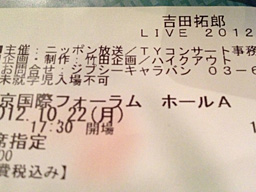 吉田拓郎
LIVE 2012
主催:ニッポン放送/TYコンサート事務
企画・制作:竹田企画/ハイクアウト
お問合せ:ジプシーキャラバン 03-6
未就学児入場不可
京国際フォーラム ホールA
2012.10.22(月)
17:30 開場
席指定
00
費税込み)